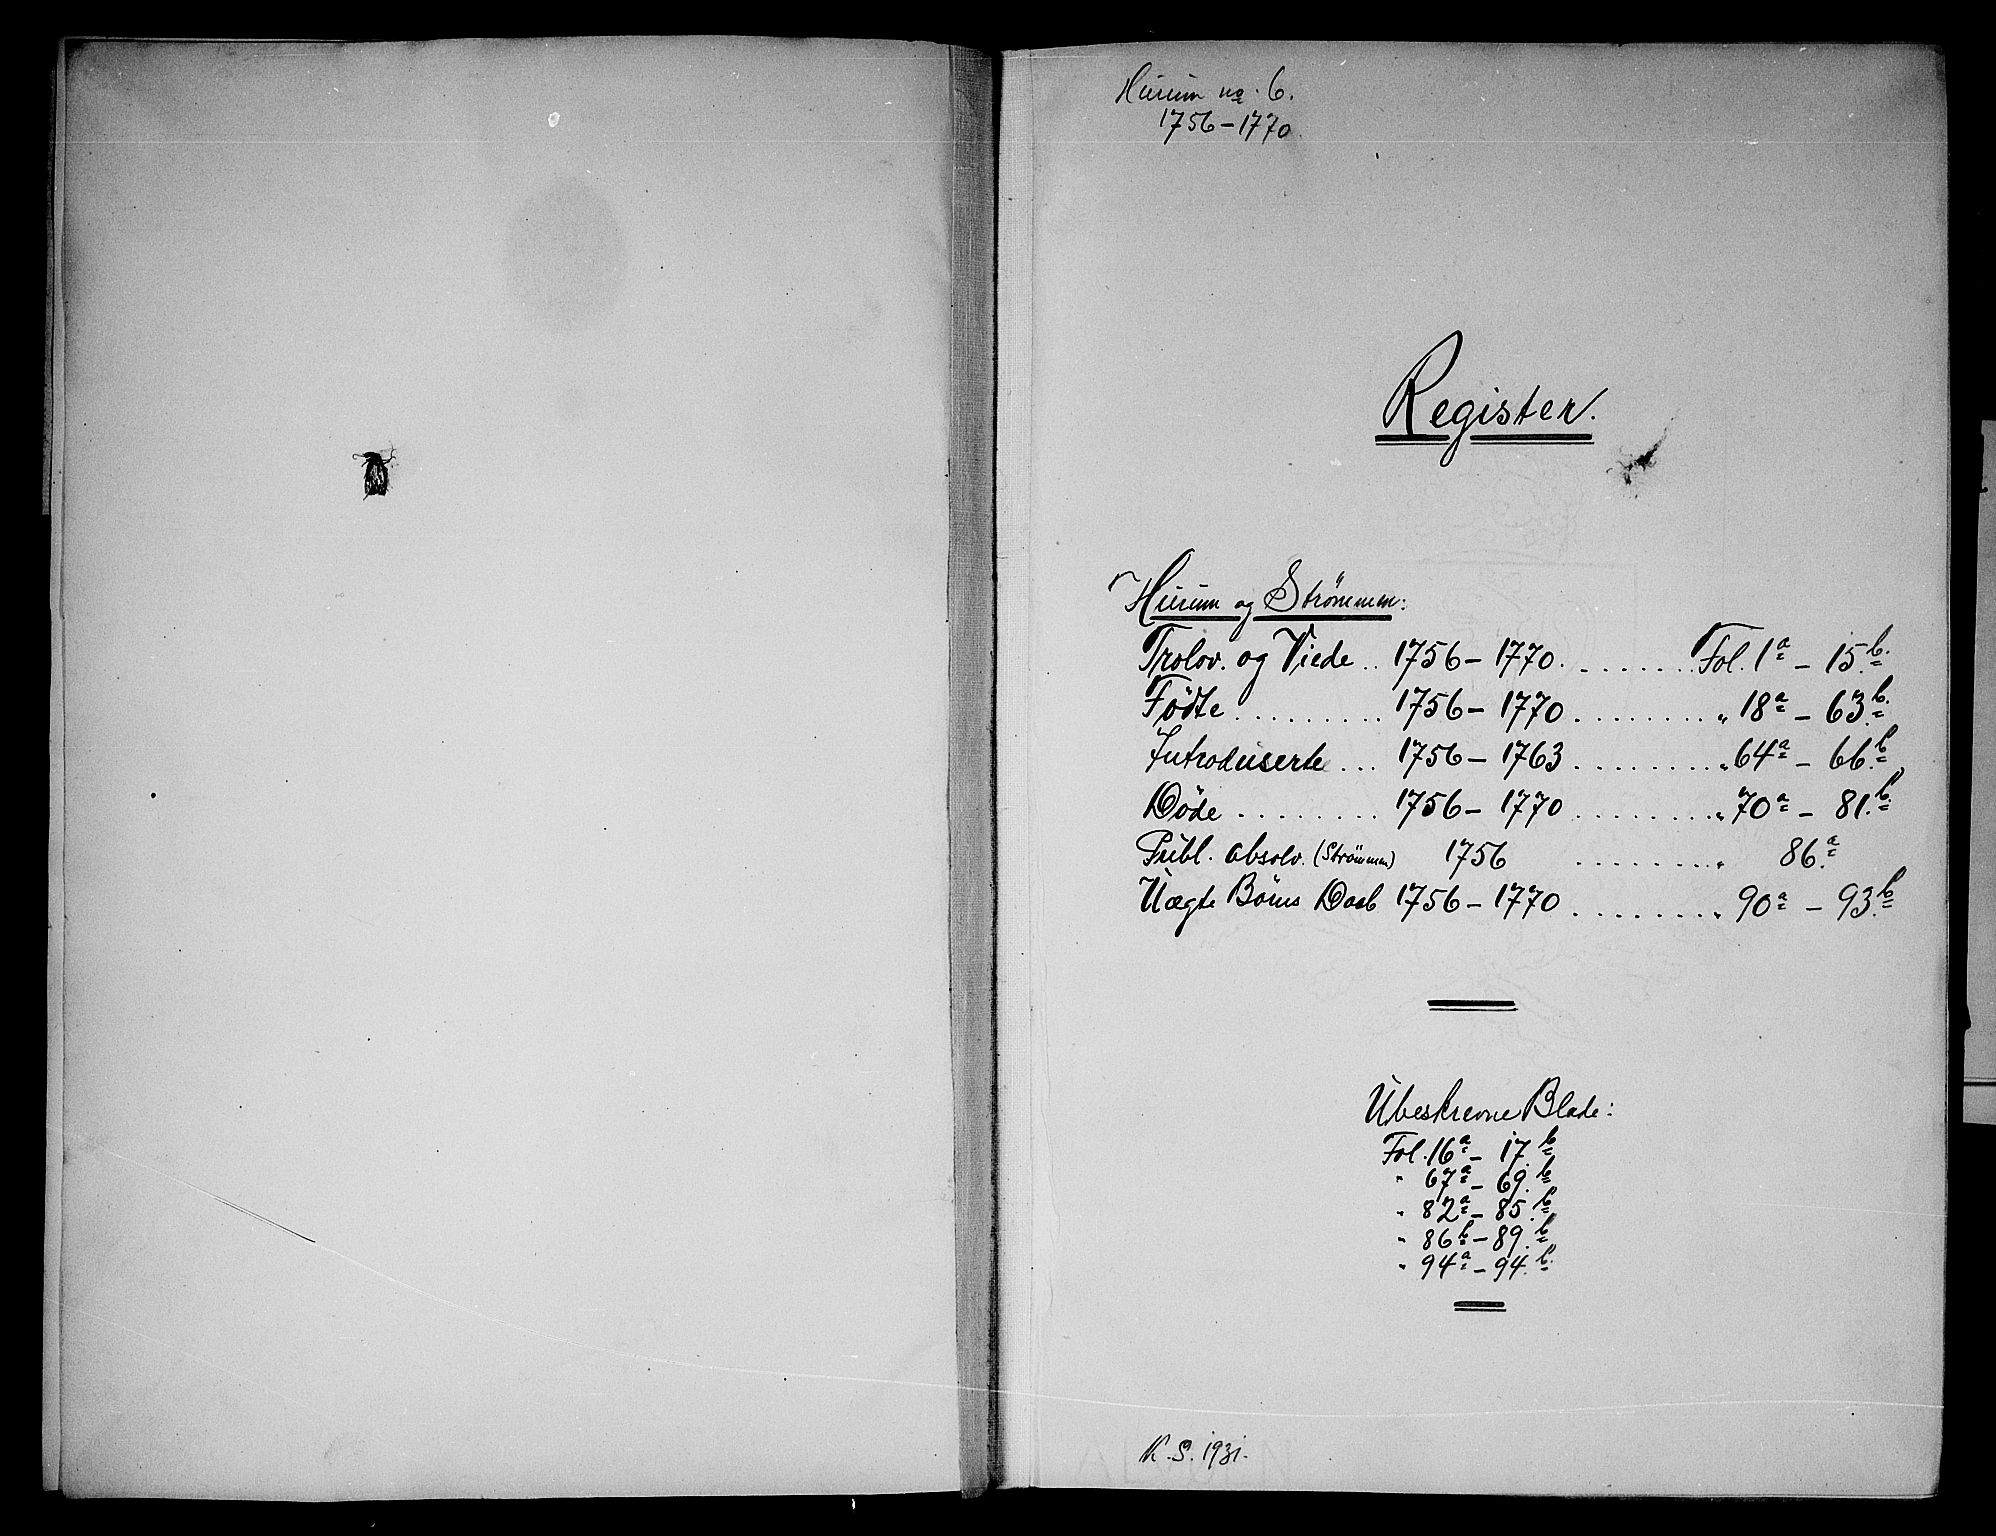 Hurum no. 6.
1756 – 1770.
Register.
Hurum og Strømmen:
Trolov. og Viede .. 1756 – 1770. ....... Fol. 1a – 15.b.
Fødte ......... 1756 – 1770 ........ " 18a – 63.b.
Introduserte ... 1756 – 1763 ........ " 64a – 66.b.
Døde ........ 1756 – 1770 ........ " 70a – 81.b.
Publ. absolv. (Strømmen) 1756 ........ " 86.a
Uægte Børns Daab 1756 – 1770 ........ " 90a – 93.b
Ubeskrevne Blade:
Fol. 16a – 17.b
" 67a – 69.b
" 82a – 85.b
" 86b – 89.b
" 94a – 94.b.
K. S. 1931.